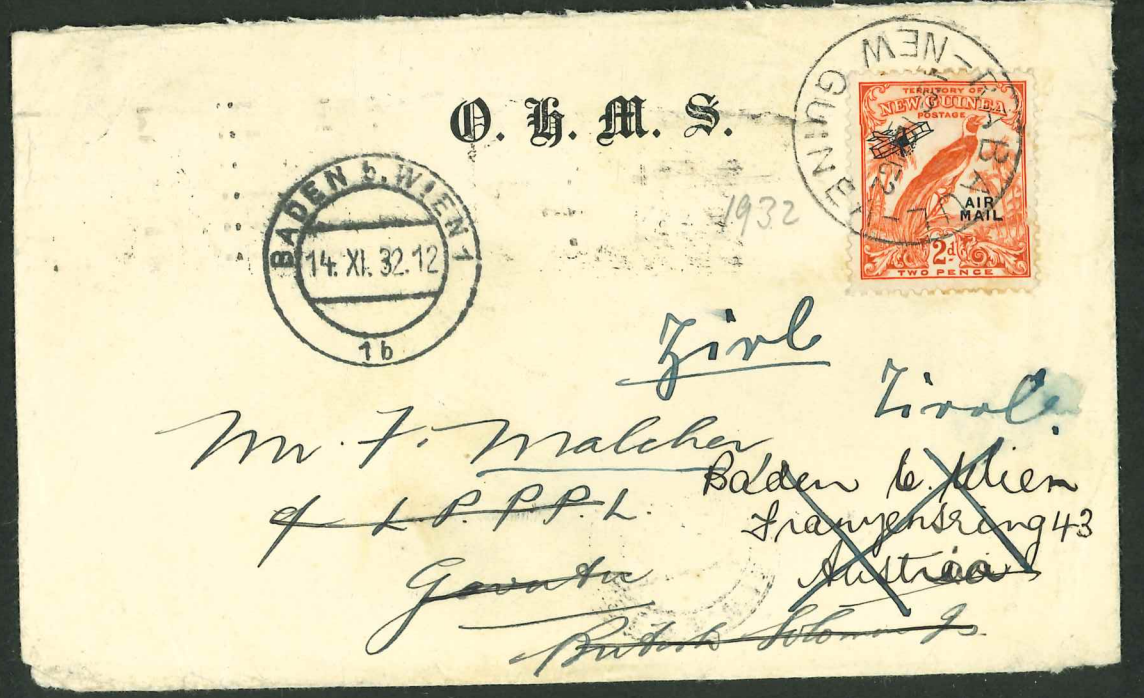 O. H. M. S.
RABAUL
NEW GUINEA
32
TERRITORY OF
NEW GUINEA
POSTAGE
AIR
MAIL
2d
TWO PENCE
BADEN b. WIEN 1
14. XI. 32. 12
1b
1932
Zirl
Zirl
Mr. F. Malcher
c/o L. P. P. P. L.
Gavutu
British Solomon Is.
Baden b. Wien
Franzensring 43
Austria